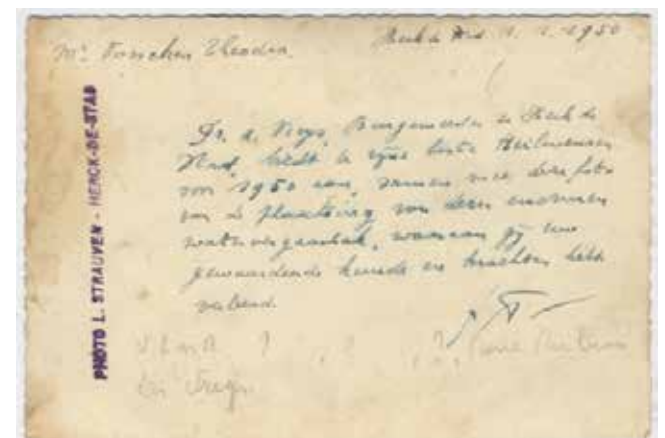 Mr Theodin
Herk de Stad 1. 1. 1950
PHOTO L. STRAUVEN - HERCK-DE-STAD
Dr. A. Burgemeester te Herk de
Stad, biedt U zijne beste Heilwensen
voor 1950 aan, samen met deze foto
van de plaatsing van dezen
watervergaarbak, waaraan gij uw
gewaardeerde kunde en krachten hebt
verleend.
V.L.n.R. ? , ? , ?,